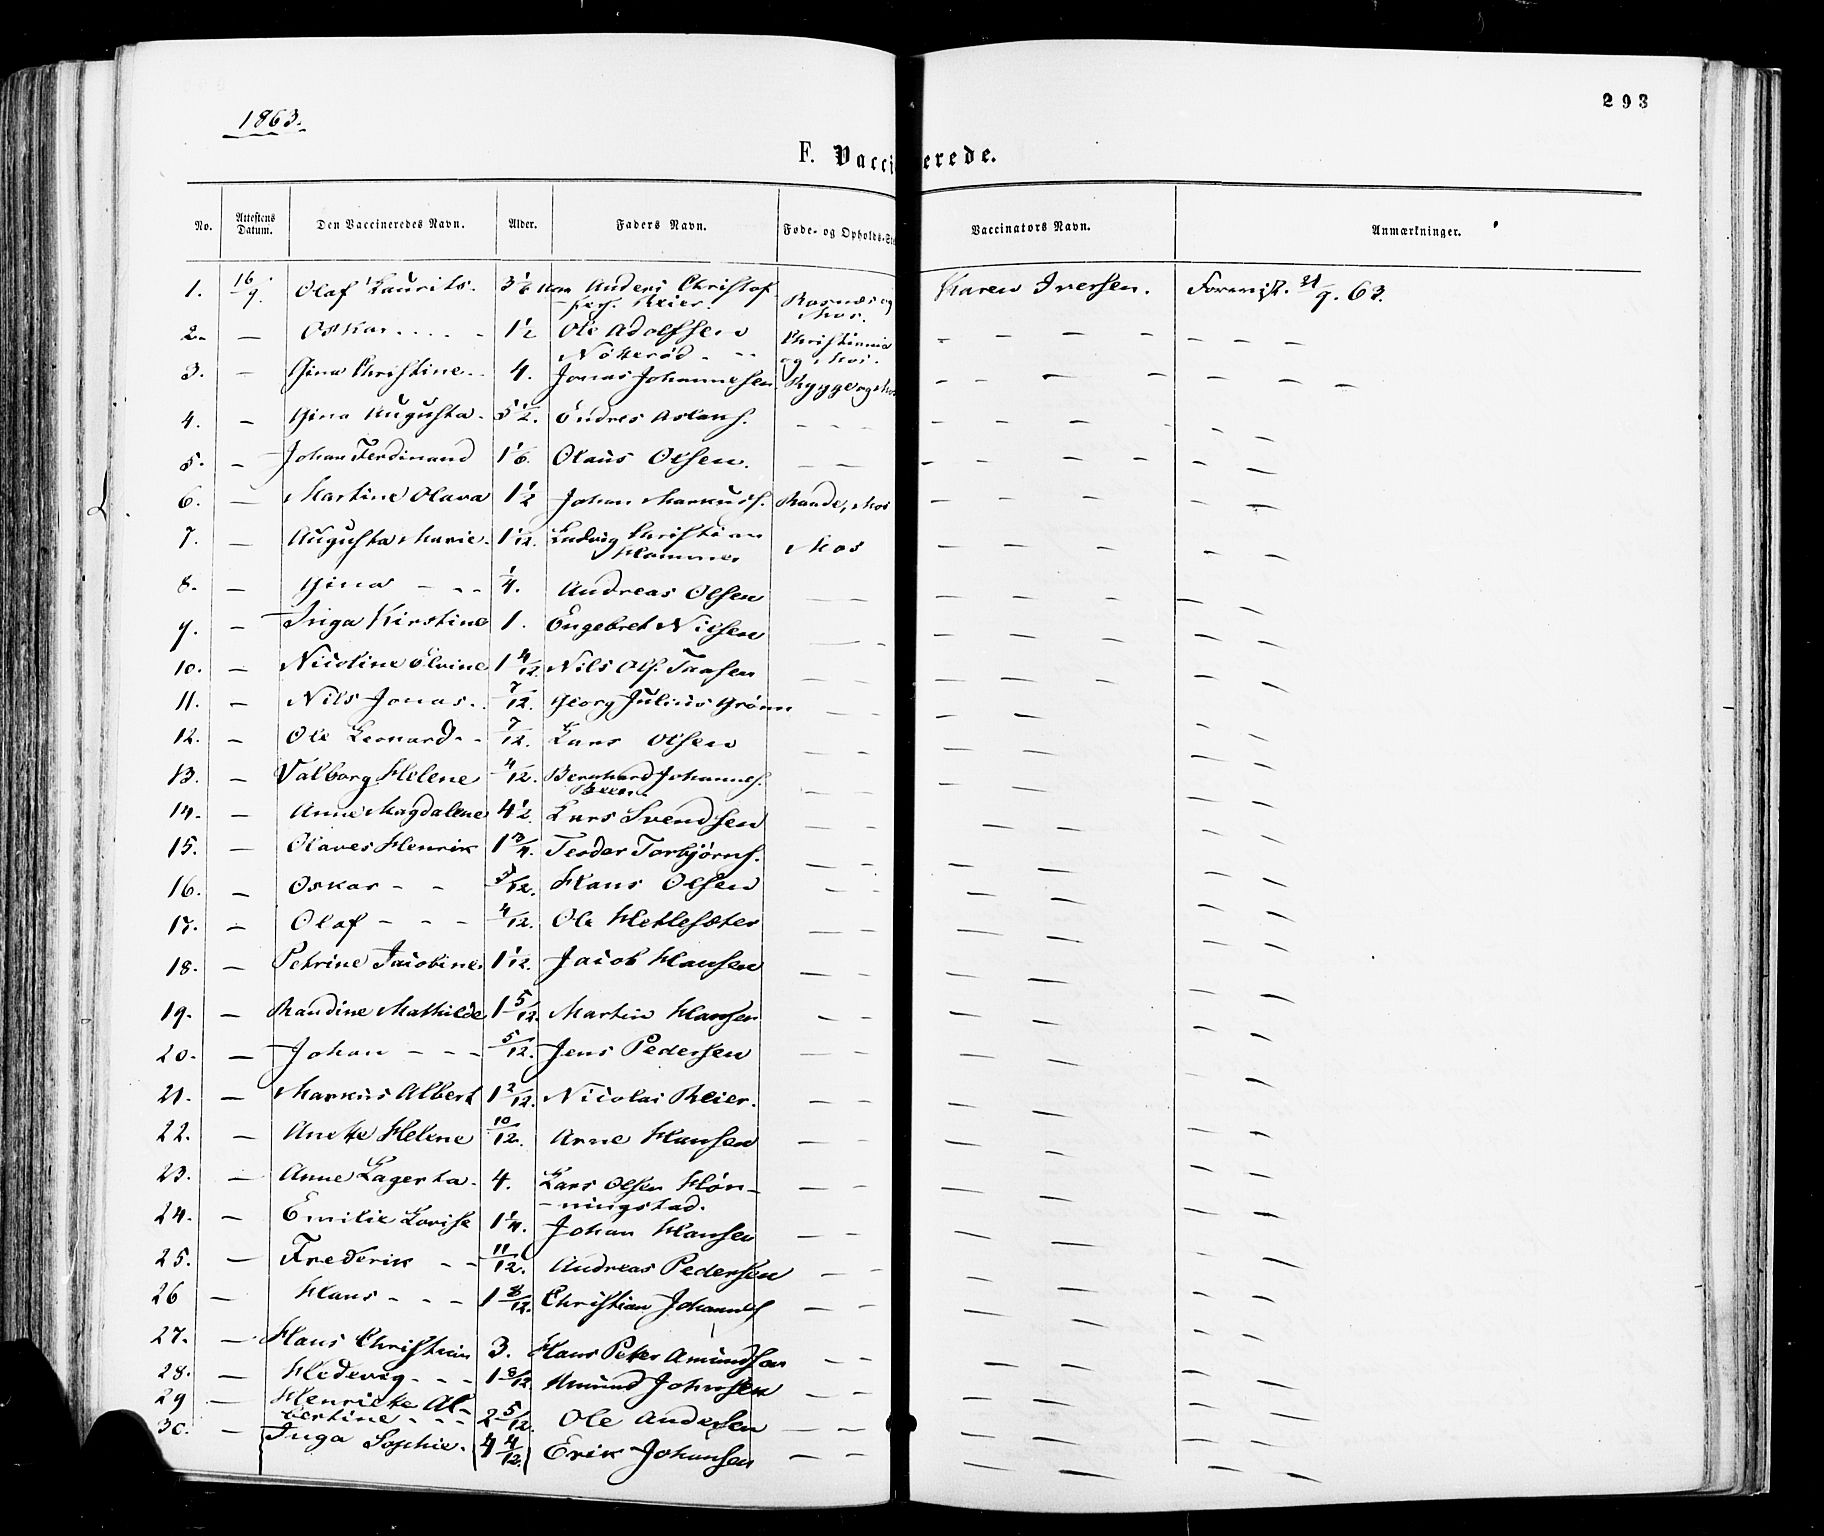 293
1863.
F. Vacci erede.
No. Attestens Datum. Den Vaccineredes Navn. Alder. Faders Navn. Føde- og Opholds-St Vaccinators Navn. Anmærkninger.
1. 16/9. Olaf Laurits. Anders Christof- Karen Iversen. 21/9. 63.
Reier. og Mos.
2. — Oskar . . . . - 1 1/2 Ole Adolfsen Christiania — — — — — — —
Nøkkerød - - og Mos.
3. — Gina Christine. 4. Jonas Johannesen Rygge og Mos — — — — — — —
4. — Gina Augusta. 5 1/2. Endres Aslaks. — — —
5. — Johan Ferdinand 1 1/6. Olaus Olsen. — —
6. — Martine Olava 1 1/2 Johan Markuss. Raade, Mos
7. — Augusta Marie. 1 1/12. Ludvig Christian Mos
Hammer
8. — Gina — - - 1/4. Andreas Olsen — —
9. — Inga Kirstine 1. Engebret Nilsen — —
10. — Nicoline Elvine 1 4/12. Nils Ols. — —
11. — Nils Jonas. 7/12. Georg Julius Grønn — —
12. — Ole Leonard - - 7/12. Lars Olsen — —
13. — Valborg Helene 4/12. Bernhard Johannes. — —
14. — Anne Magdalene 4 1/2. Lars Svendsen — —
15. — Olaves Henrik 1 3/4. Teodor Torbjørns. — —
16. — Oskar - - 3/12. Hans Olsen — —
17. — Olaf - - - 4/12. Ole Hetlesæter — —
18. — Petrine Jacobine. 1 1/12. Jacob Hansen — —
19. — Randine Mathilde 1 5/12. Martin Hansen — —
20. — Johan - - - 5/12. Jens Pedersen — —
21. — Markus Albert 1 2/12. Nicolai Reier. — —
22. — Anette Helene 10/12. Arne Hansen — —
23. — Anne Lagerta. 4. Lars Olsen Høn- — —
-ningstad.
24. — Emilie Lovise 1 1/4. Johan Hansen — —
25. — Frederik - - 11/12. Andreas Pedersen — —
26 — Hans - - - 1 8/12. Christian Johannes — —
27. — Hans Christian 3. Hans Peter Amundsen — —
28. — Hedevig - - - 1 8/12 Amund Johnsen — —
29 — Henricke Al-
bertine - - - 2 5/12. Ole Andersen — —
30. — Inga Sophie. 4 4/12. Erik Johansen — —